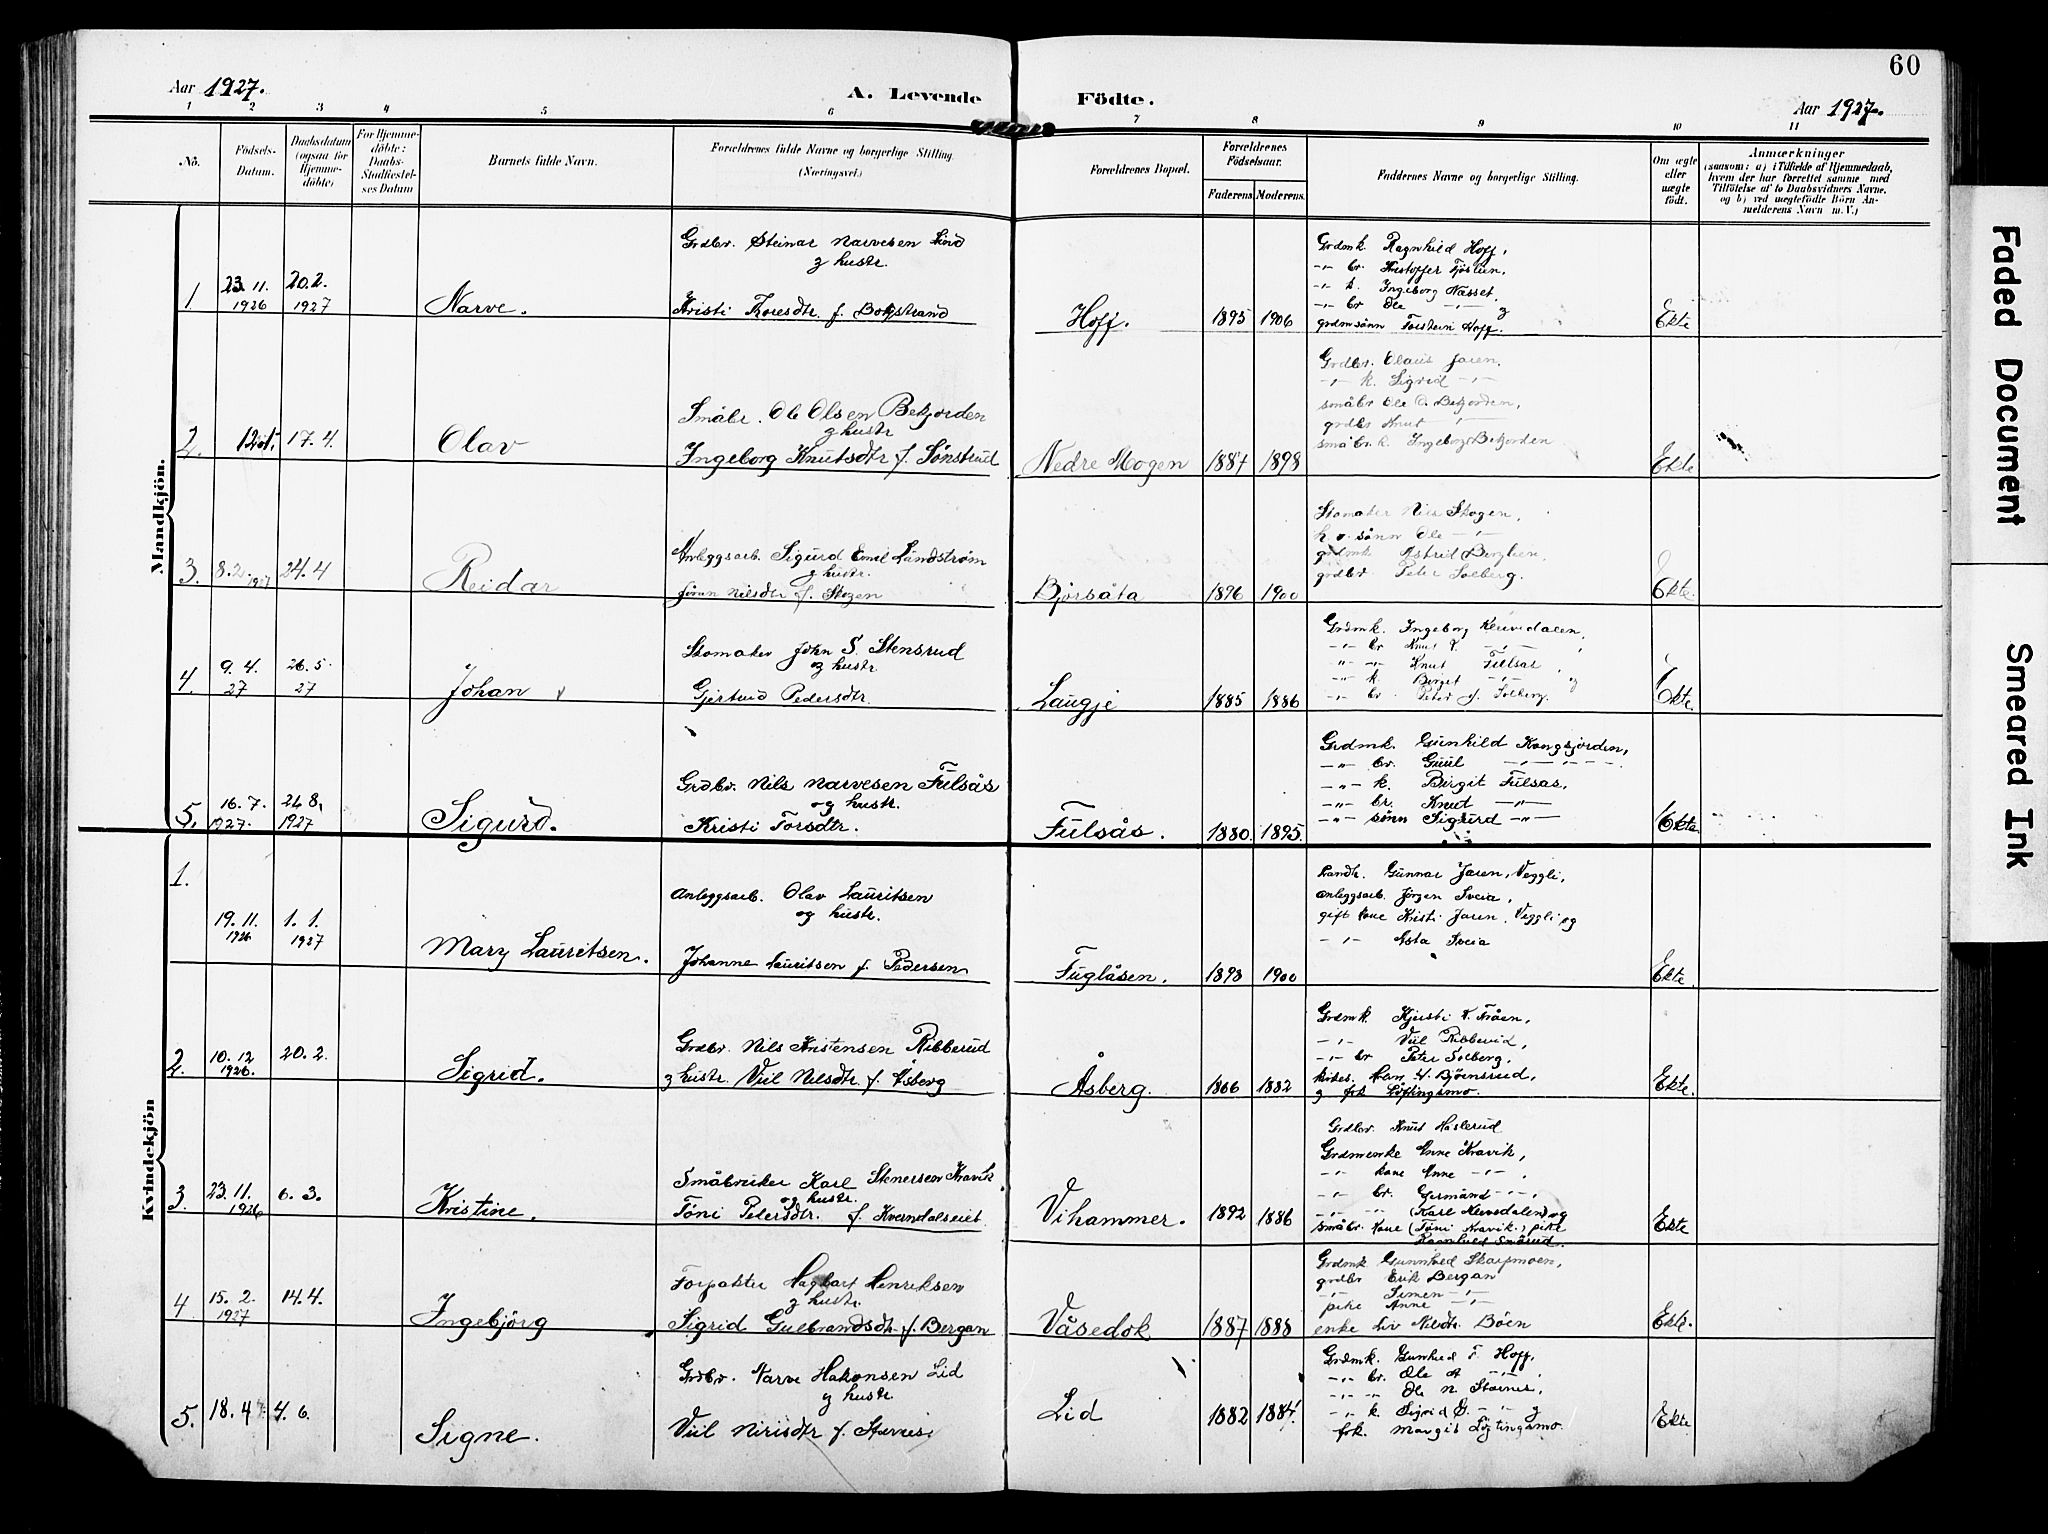 60
Aar 1927.
A. Levende
Födte.
Aar 1927.
1 2 3 4 5 6 7 8 9 10 11
No.
Födsels-
Datum.
Daabsdatum
(ogsaa for
Hjemme-
döbte)
For Hjemme-
döbte:
Daabs-
Stadfæstel-
ses Datum
Barnets fulde Navn.
Forældrenes fulde Navne og borgerlige Stilling.
(Næringsvei.)
Forældrenes Bopæl.
Forældrenes
Födselsaar.
Faderens
Moderens.
Faddernes Navne og borgerlige Stilling.
Om ægte
eller
uægte
födt.
Anmærkninger
(saasom: a) i Tilfælde af Hjemmedaab,
hvem der har forrettet samme med
Tilföielse af to Daabsvidners Navne.
og b) ved uægtefödte Börn An-
melderens Navn m. V.)
Mandkjön.
1.
23. 11.
1926
20. 2.
1927
Narve.
Grdbr. Steinar Narvesen Lind
g hustr.
Kristi Toresdtr. f. Bogstrand
Hoff.
1895
1906
Grdmk. Ragnhild Hoff,
-"- br. Kristoffer Fjöslien,
-"- k. Ingeborg Næsset.
-"- br Ole -"- g
grdmsönn Torstein Hoff.
Ekte
2.
17. 4.
Olav
Småbr. Ole Olsen Bekjorden
g hustr
Ingeborg Knutsdtr f. Sönstrud
Nedre Mogen
1887
1898
Grdbr. Olaus Jaren.
-"- k. Sigrid -"-
småbr Ole O. Bekjorden,
grdbr Knut -"-
småbr. k. Ingeborg Bekjorden
Ekte
3.
8. 2. 1927
24. 4
Reidar
Anleggsarb. Sigurd Emil Lundström
g hustr.
Jöran Nilsdtr f. Skogen
Björsåta
1896
1900
Skomaker Nils Skogen,
h. o. sönn Ole -"-
grdmk. Astrid Berglien,
grdbr. Peter Solberg.
Ekte.
4.
9. 4.
27
26. 5.
27
Johan
Skomaker John S. Stensrud
g hustr
Gjertrud Pedersdtr.
Laugje
1885
1886
Grdmk. Ingeborg Kenvedalen,
-"- br Knut T. -"-
-"- -"- Knut Fulsås
-"- k Berget -"- og
-"- br. Peter J. Solberg.
Ekte.
5.
16. 7.
1927.
24 8.
1927
Sigurd.
Grdbr. Nils Narvesen Fulsås
og hustr.
Kristi Torsdtr.
Fulsås.
1880.
1895.
Grdmk. Gunhild Kongsjorden,
-"- br. Guul -"-
-"- k. Birgit Fulsas,
-"- br. Knut -"-
-"- sönn Sigurd -"-
Ekte
Kvindekjön
1.
19. 11.
1926
1. 1.
1927
Mary Lauritsen.
Anleggsarb. Olav Lauritsen
og hustr.
Johanne Lauritsen f. Pedersen
Fuglåsen.
1893
1900
Landh. Gunnar Jaren, Veggli,
Anleggsarb. Jörgen Sveia,
gift kone Kristi Jaren, Veggli og
-"- Asta Sveia
Ekte.
2.
10. 12
1926.
20. 2.
Sigrid.
Grdbr. Nils Kristensen Ribberud
g hustr. Viil Nilsdtr. f. Åsberg
Åsberg.
1866
1882
Grdmk. Kjersti K. Fråen,
-"- Viil Ribberud,
-"- br Petri Solberg,
Björnsrud,
g frk Löftingsmo.
Ekte.
3.
23. 11.
1926
6. 3.
Kristine.
Småbruker Karl Stenersen Kravik
og hustr.
Töni Petersdtr. f. Kverndalseiet
Vihammer.
1892
1886
Grdbr. Knut Haslerud
Grdmenke Anne Kravik,
-"- kone Anne -"-
-"- br. Germund -"-
-"- (Karl Kensdalen) og
småbr. kone (Töni Kravik.) pike
Ramhild Smörud.
Ekte
4
15. 2.
1927
14. 4.
Ingebjörg
Forpakter Hagbart Henriksen
g hustr.
Sigrid Gulbrandsdtr. f. Bergan
Våsedok
1887
1888
Grdmk Gunnhild Skarpmoen,
grdbr Erik Bergan
-"- Simen -"-
pike Anne -"-
enke Liv Nilsdtr. Böen
Ekte.
5.
18. 4
4. 6.
Signe.
Grdbr. Narve Hakonsen Lid
g hustr.
Viil Nirisdtr f. Stærnes
Lid
1882
1884.
Grdmk. Gunhild T. Hoff,
-"- br. Ole A -"-
-"- -"- Ole N. Stærnes,
-"- k. Sigrid G. -"- g
frk. Margit Löftingsmo.
Ekte
Faded Document
Smeared Ink